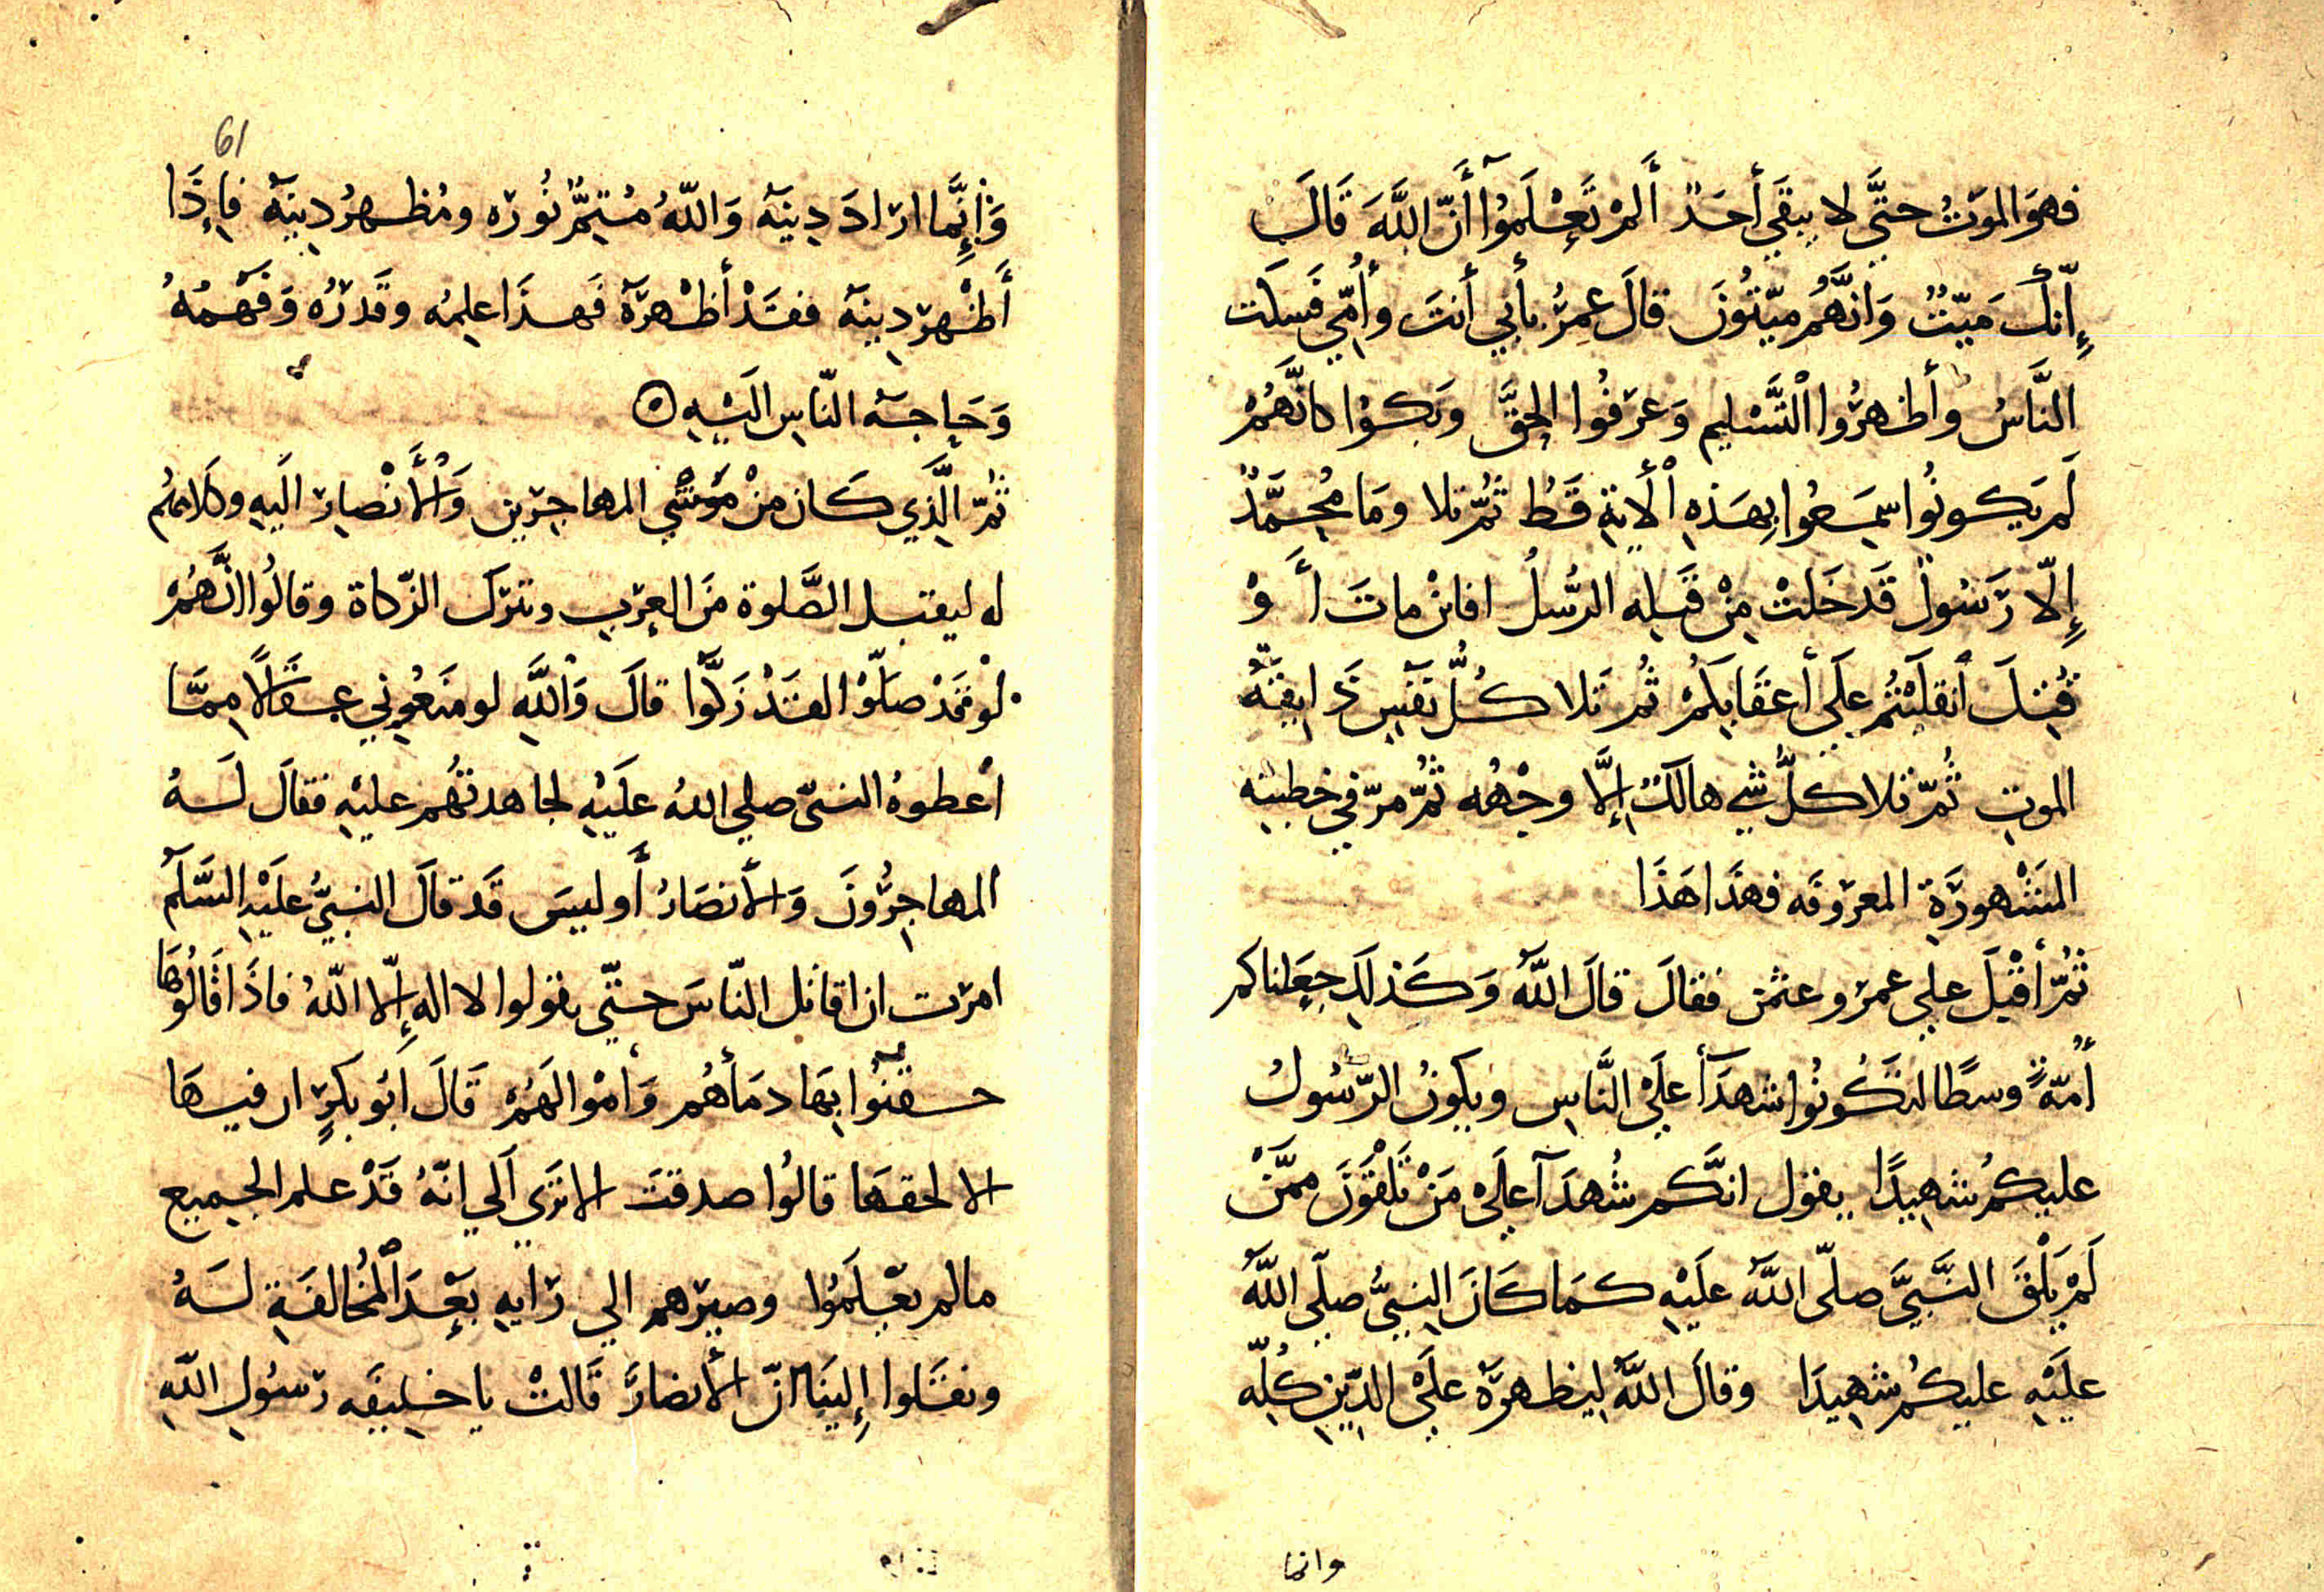 فهوَ الموَتُ حتَّي لا يبقَي أحَدٌ أَلمْ تَعْلَموُآ أَنّ اللَّهَ قَالَ
إِنّكَ مَيّتٌ وَانَّهُم ميّتُونَ قالَ عمرُ بأبي أنتَ وأُمّي فَسكَت
النَّاسُ وأظهرُوا التَّسْليم وَعرَفُوا الحقَّ وبَكوْا كانَّهُمْ
لَم يَكونُوا سمَعُوا بِهذِه الأيَة قَط ثُمّ تلا وَمَا مُحمَّدٌ
إِلّا رَسُولٌ قَد خَلتْ مِنْ قَبله الرُّسلُ افائنْ ماتَ أَوْ
قُتِلَ انقلَبْتُم علَي أعقَابِكمُ ثُم تَلا كُلُّ نَفسٍ ذَايقَةُ
الموتِ ثُمّ تلا كلُّ شي هالكٌ إِلَّا وجْهُه ثُمّ مرّ في خطبته
المَشْهورَةِ المعروفَه فهذَا هَذَا
ثُمّ أقْبَلَ علي عمرَ وعثمن فقالَ قالَ اللَّهُ وَكَذلِكَ جعَلناكم
أُمّةً وسطًا لتَكُونُوا شهدَآ علَيْ النَّاسِ ويكونُ الرّسُولُ
عليكمُ شهِيدًا يقول انَّكم شُهدَآ علَيْ مَنْ تَلْقَوْنَ ممَّنْ
لَمْ يَلْقَ النَّبيَّ صلّى اللَّهُ علَيْهِ كمَا كَانَ النبيُّ صلّي اللَّهُ
علَيْهِ عليكُم شهِيدَا وقالَ اللَّهُ لِيظهرَهُ علَيْ الدِّينِ كُلِّه
وانما
61
وَإِنَّما ارَادَ دِينَهُ وَاللّهُ مُتِمُّ نُورَه ومُظهرُ دِينِهِ فاِذَا
أَظْهرَ دِينَهُ فقَدْ أظْهرَهُ فَهذَا علمُه وقَدرُه وَفَهْمُهُ
وَحَاجَةُ النّاسِ الَيْهِ
ثُمّ الَّذِي كَان مِنْ مَوَشْي المهاجرَين وَالْأَنْصارِ الَيهِ وكَلامهُم
له ليقبل الصَّلوة مَن العرَب ويترَك الزّكاة وقالُوا انَّهُمْ
لوْ قَدْ صلّوْا لقَدْ زَكَّوْا قالَ وَاللَّهِ لو منَعُوني عِقَالًا مِمَّا
أعْطوهُ النبيّ صلي اللهُ علَيْهِ لجاهدتُهُم عليْهِ فقالَ لَهُ
المهاجرُونَ وَالأنصَارُ أَو ليسَ قَد قالَ النبيُّ علَيْهِ السَّلَم
امرَت ان اقاتل النّاسَ حتّي يقولوا لا اله إِلّا اللّهُ فاذَا قَالُوهَا
حقنُوا بِهَا دمَأهُم وَأموْالهُمْ قَالَ أَبُو بكرٍ ان فيهَا
الا لحقهَا قالُوا صدقتَ الا ترَي الَي انّهُ قَدْ علم الجميع
مالم يعْلَموُا وصيرَهم الي رَايه بَعْدَ المُخالفَةِ لَهُ
ونقَلوا إِلينَا انّ الأنصارَ قَالتْ يا خليفَه رَسُولِ اللّهِ